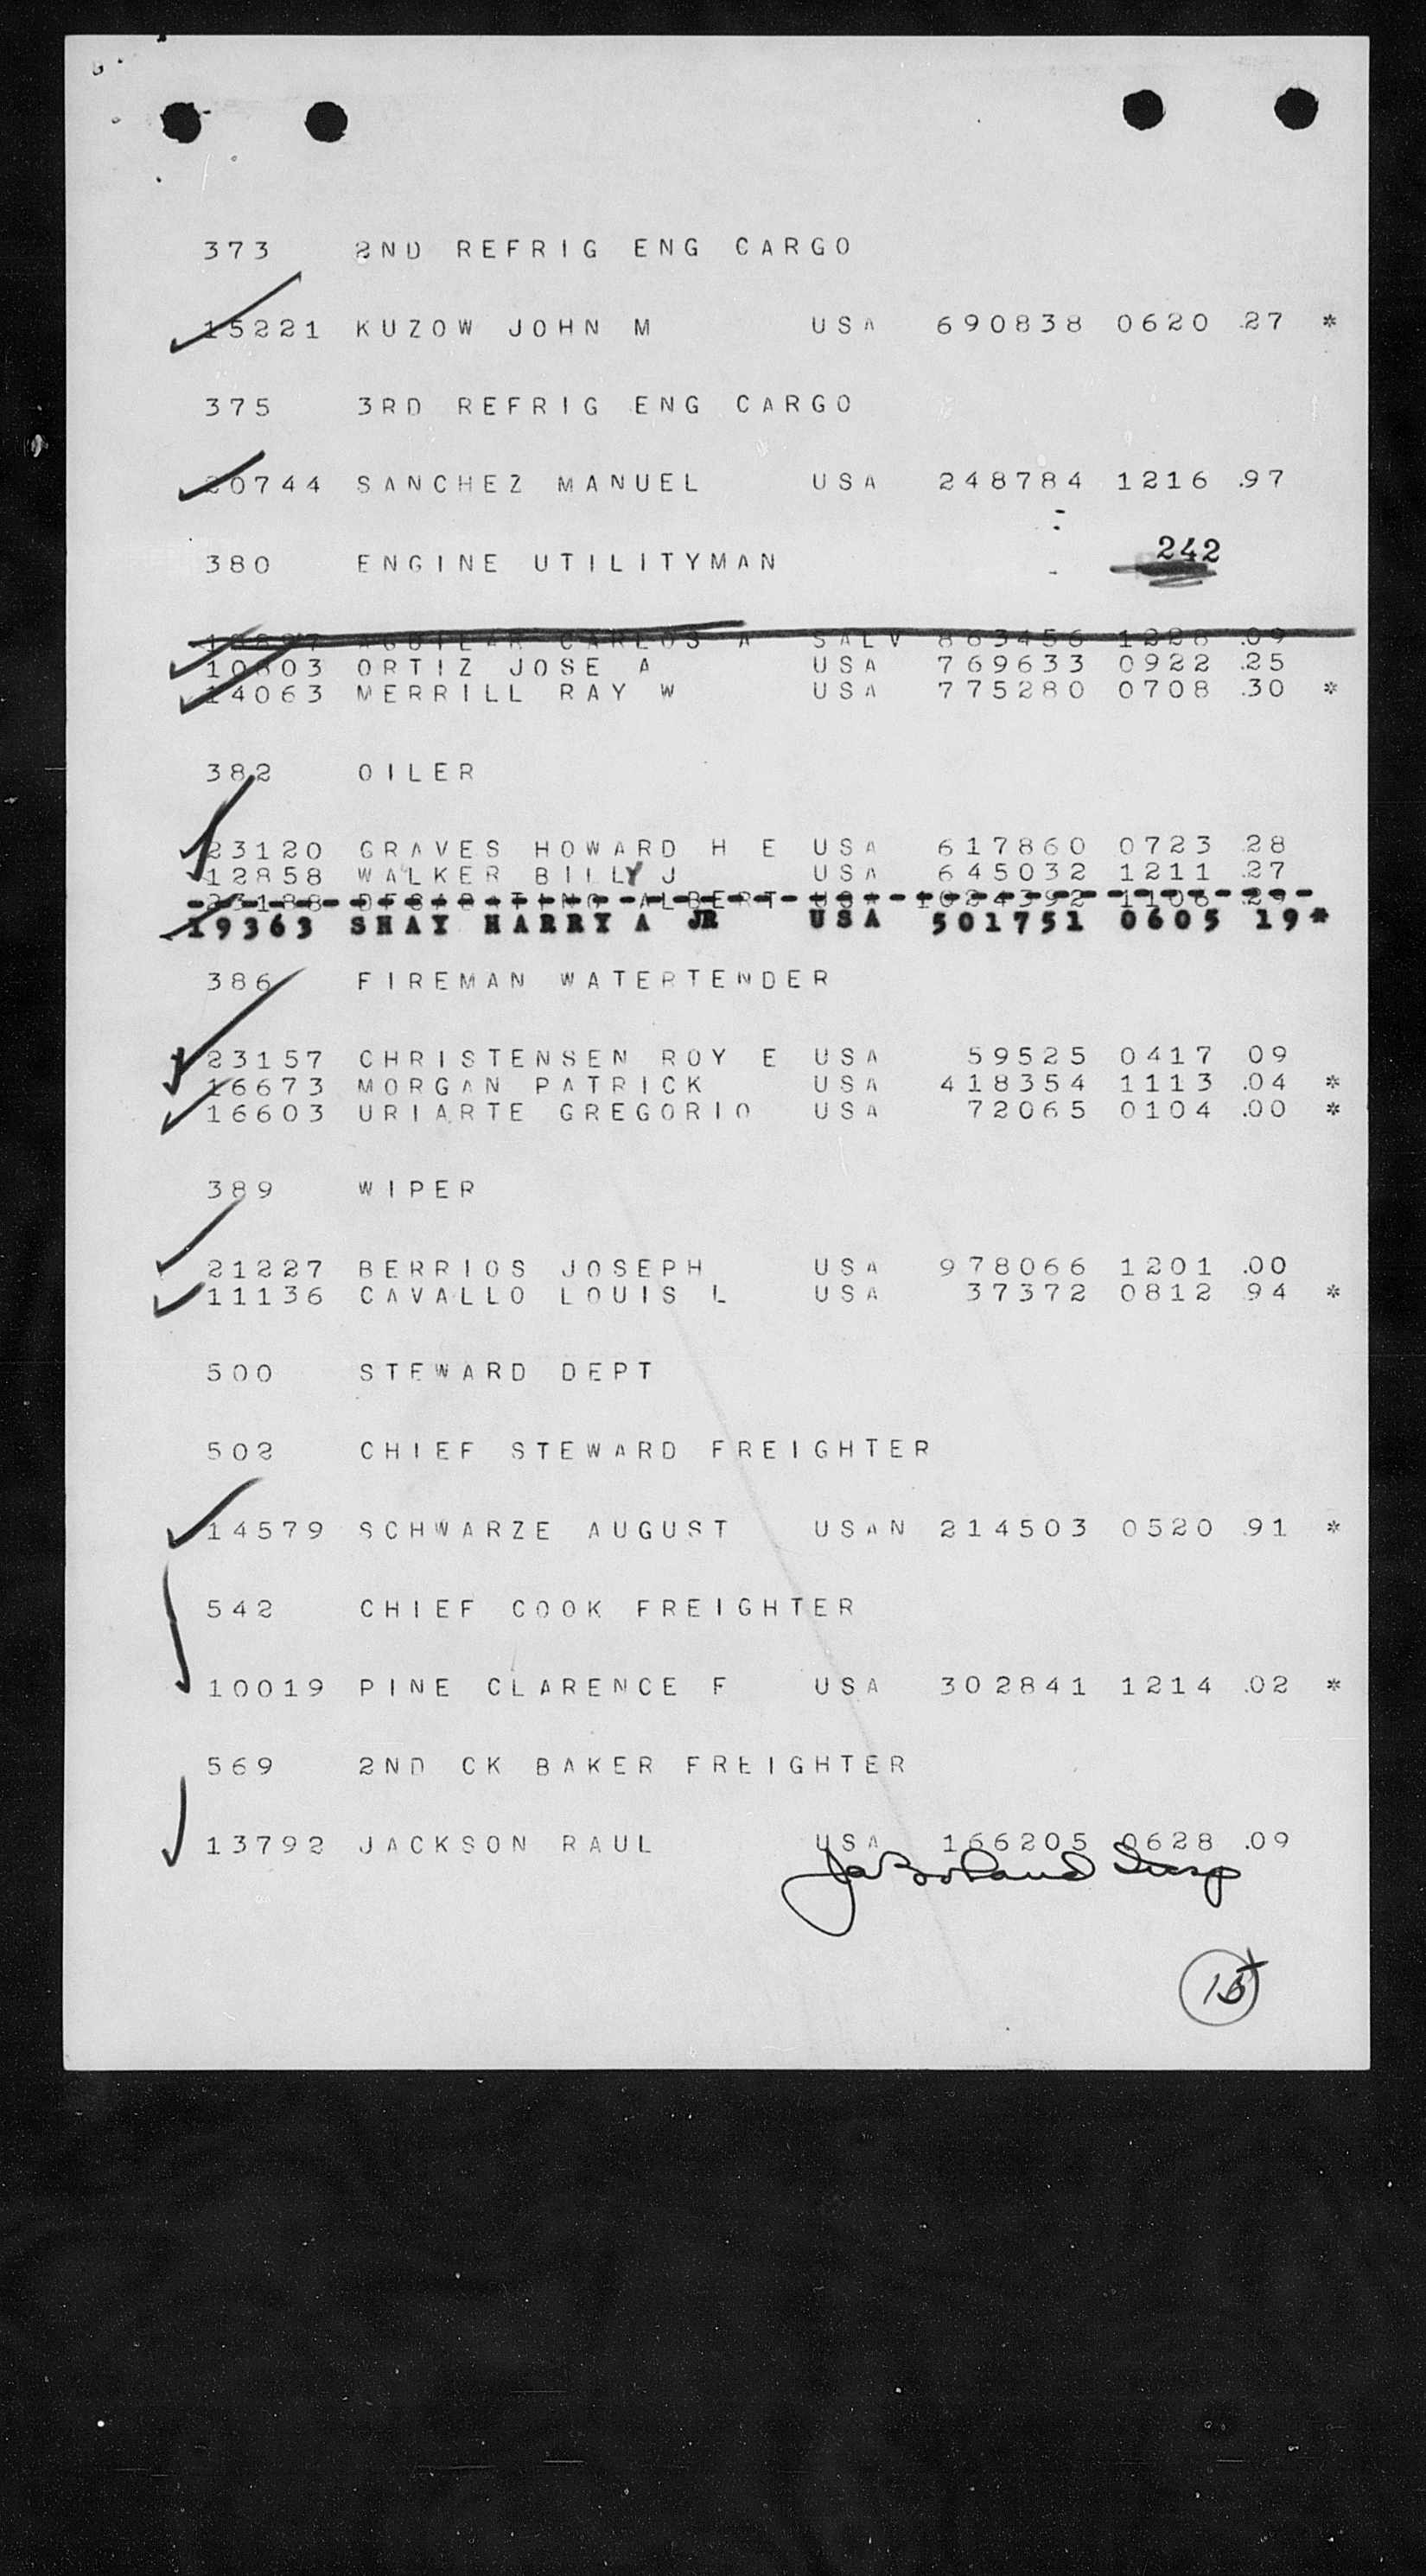 373 2ND REFRIG ENG CARGO
15221 KUZOW JOHN M USA 690838 0620 .27 *
375 3RD REFRIG ENG CARGO
20744 SANCHEZ MANUEL USA 248784 1216 .97
242
380 ENGINE UTILITYMAN
AGUILAR CARLOS A SALV 863456 1228 .09
10803 ORTIZ JOSE A USA 769633 0922 .25
14063 MERRILL RAY W USA 775280 0708 .30 *
382 OILER
23120 GRAVES HOWARD H E USA 617860 0723 28
12858 WALKER BILLY J USA 645032 1211 .27
23188 ALBERT USA 1024392 1106 .29
19363 SHAY HARRY A JR USA 501751 0605 19*
386 FIREMAN WATERTENDER
23157 CHRISTENSEN ROY E USA 59525 0417 09
16673 MORGAN PATRICK USA 418354 1113 .04 *
16603 URIARTE GREGORIO USA 72065 0104 .00 *
389 WIPER
21227 BERRIOS JOSEPH USA 978066 1201 .00
11136 CAVALLO LOUIS L USA 37372 0812 94 *
500 STEWARD DEPT
502 CHIEF STEWARD FREIGHTER
14579 SCHWARZE AUGUST USAN 214503 0520 .91 *
542 CHIEF COOK FREIGHTER
10019 PINE CLARENCE F USA 302841 1214 .02 *
569 2ND CK BAKER FREIGHTER
13792 JACKSON RAUL USA 166205 0628 .09